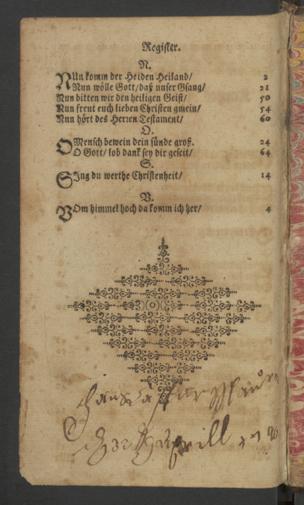 Register.
N.
NUn komm der Heiden Heiland/ 2
Nun wölle Gott/ daß unser Gsang/ 21
Nun bitten wir den heiligen Geist/ 50
Nun freut euch lieben Christen gmein/ 54
Nun hört des Herren Testament/ 60
O.
O Mensch bewein dein sünde groß. 24
O Gott/ lob dank sey dir geseit/ 64
S.
SIng du werthe Christenheit/ 14
V.
VOm himmel hoch da komm ich her/ 4